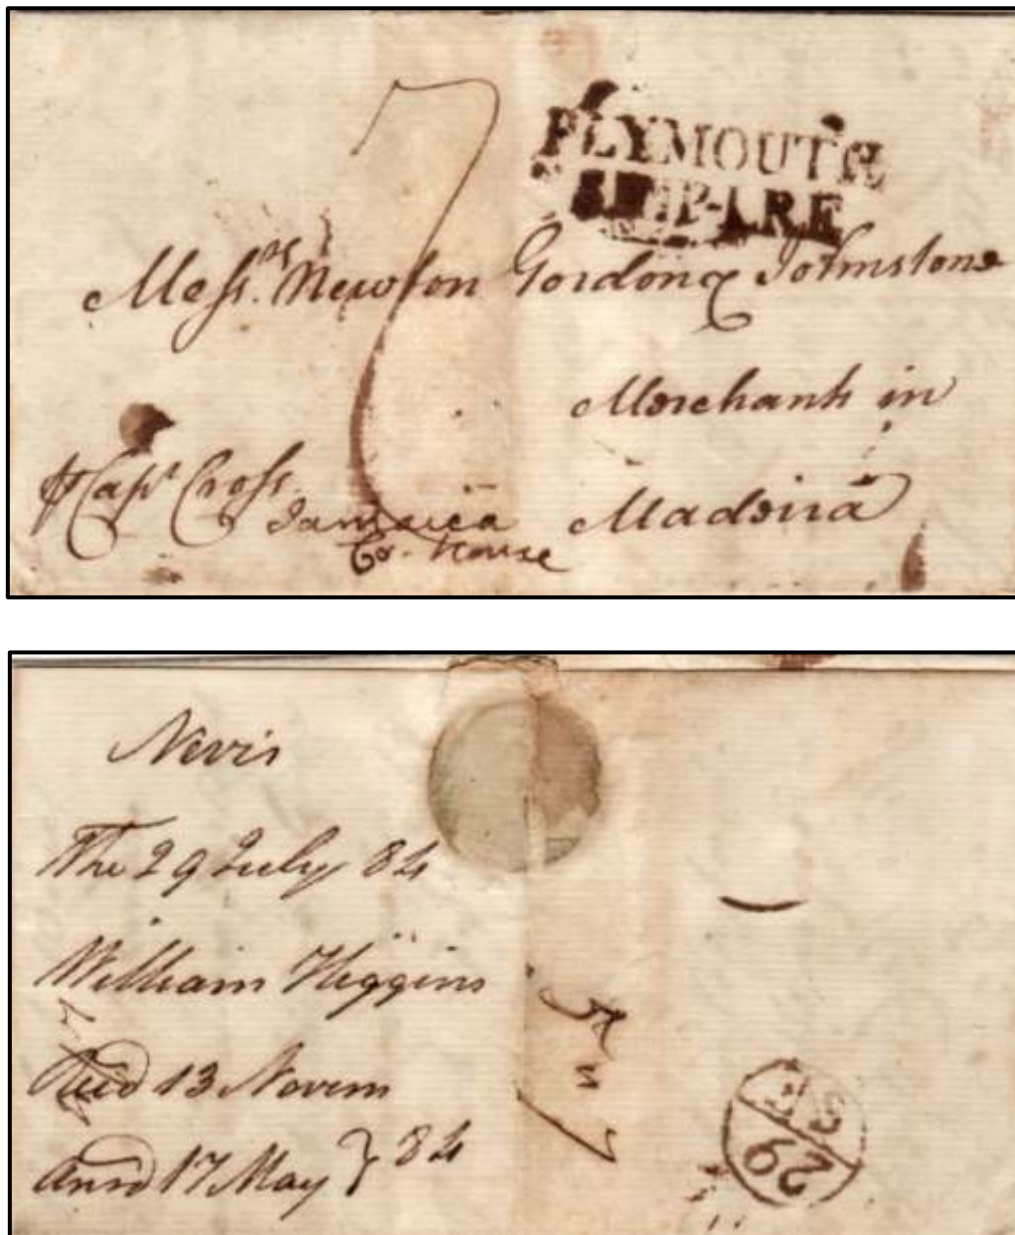 7
PLYMOUTH
SHIP-LRE
Messrs. Newton Gordon & Johnstone
Merchants in
Madeira
Capt Cross.
Jamaica
Co. House
Nevis
The 29 July 84
William Higgins
Recd 13 Novem
Ansd 17 May } 84
29